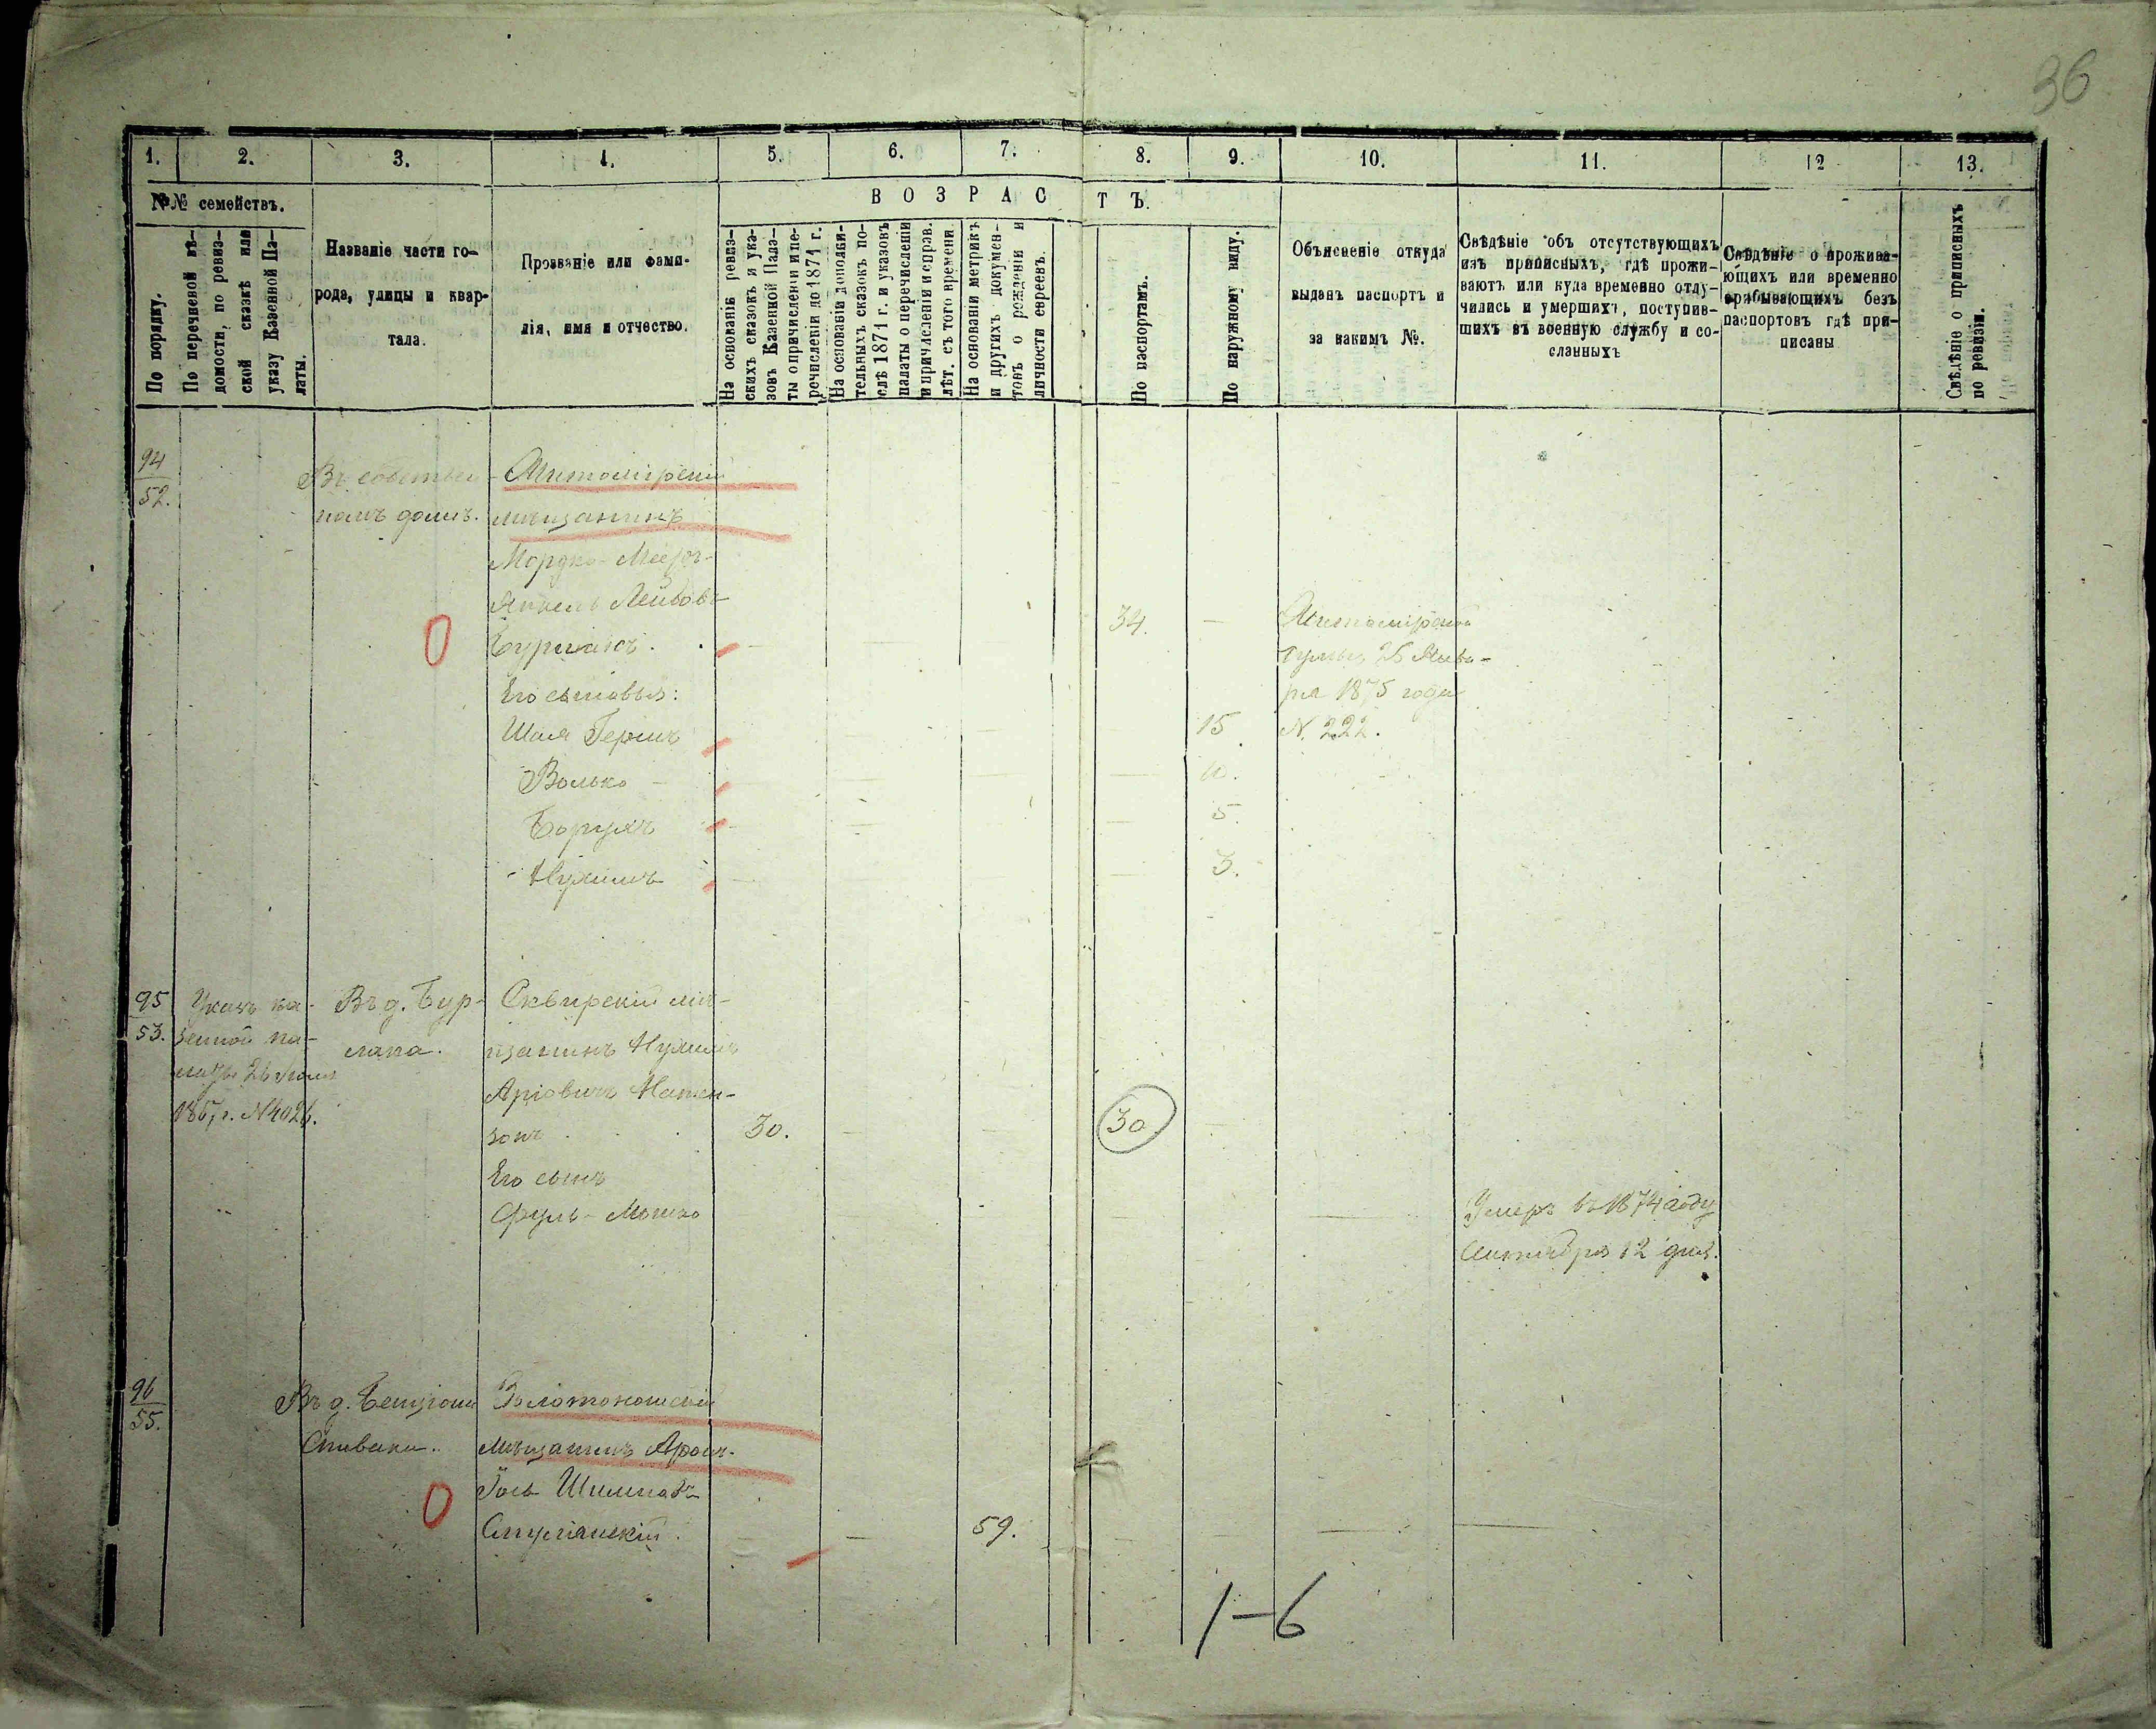 36
1. 2. 3. 4. 5. 6. 7. 8. 9. 10. 11. 12 13.
№№ семействъ.
В О З Р А С Т Ъ.
По порядку.
По перечневой вѣ-
домости, по ревиз-
ской сказкѣ или
указу Казенной Па-
латы.
Названіе части го-
рода, улицы и квар-
тала.
Прозваніе или фами-
лія, имя и отчество.
На основаніи ревиз-
скихъ сказокъ и ука-
зовъ Казенной Пала-
ты о причисленіи и пе-
речисленіи до 1871 г.
На основаніи дополни-
тельныхъ сказокъ по-
слѣ 1871 г. и указовъ
палаты о перечисленіи
и причисленіи и справ.
лѣт. съ того времени.
На основаніи метрикъ
и другихъ докумен-
товъ о рожденіи и
личности евреевъ.
По паспортамъ.
По наружному виду.
Объясненіе откуда
выданъ паспортъ и
за какимъ №.
Свѣдѣніе объ отсутствующихъ
изъ приписныхъ, гдѣ прожи-
ваютъ или куда временно отлу-
чились и умершихъ, поступив-
шихъ въ военную службу и со-
сланныхъ
Свѣдѣніе о прожива-
ющихъ или временно
пребывающихъ безъ
паспортовъ гдѣ при-
писаны
Свѣдѣніе о приписныхъ
по ревизіи.
94
52.
Въ собствен-
номъ домѣ.
Житомірскій
мѣщанинъ
Мордко-Мееръ-
Янкель Лейбовъ
Бурлакъ.
34.
Житомірской
Думы, 25 Янва-
ря 1875 года
№ 222.
Его сыновья:
Шая Гершъ
15
Волько
10.
Борухъ
5.
Нухимъ
3.
95
53.
Указъ ка-
зенной па-
латы 26
186 г. № 4026.
Въ д. Бур-
лака.
Сквирскій мѣ-
щанинъ Нухимъ
Аріовичъ Натен-
зонъ
30.
30
Его сынъ
Сруль-Мошко
Умеръ въ 1874 году
Сентября 12 дня.
96
55.
Въ д. Бенціона
Спивака.
Золотоношскій
мѣщанинъ Аронъ-
Іось
59.
1-6